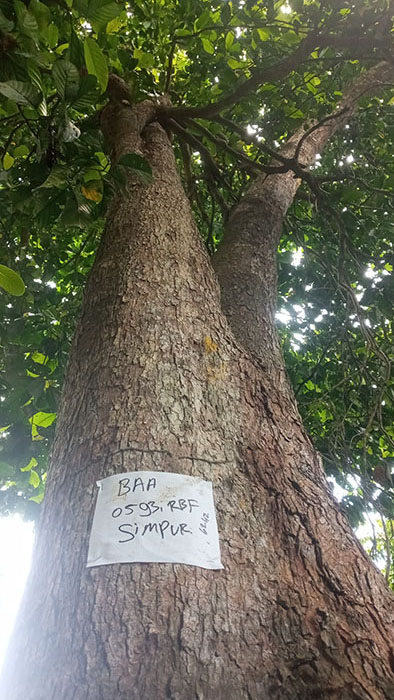 BAA
0593.RBF
SimPUR
62.42